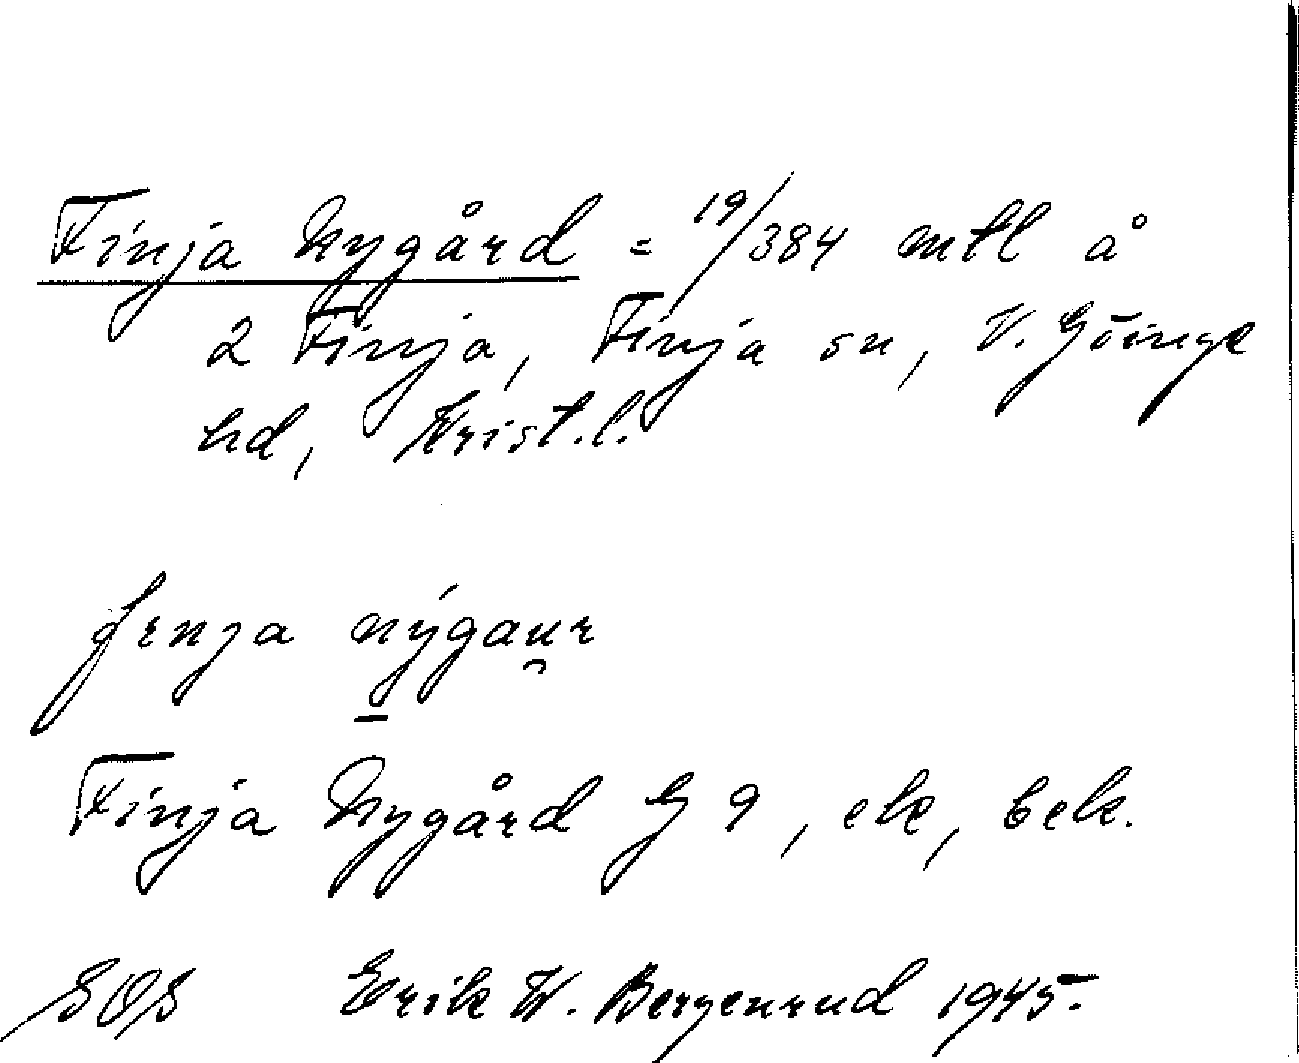 Finja Nygård = 19/384 mtl å
2 Finja, Finja sn, V. Göinge
hd, Krist.l.
nýgau̯r
Finja Nygård G 9, ek, bek.
Erik W. Bergenrud 1945.